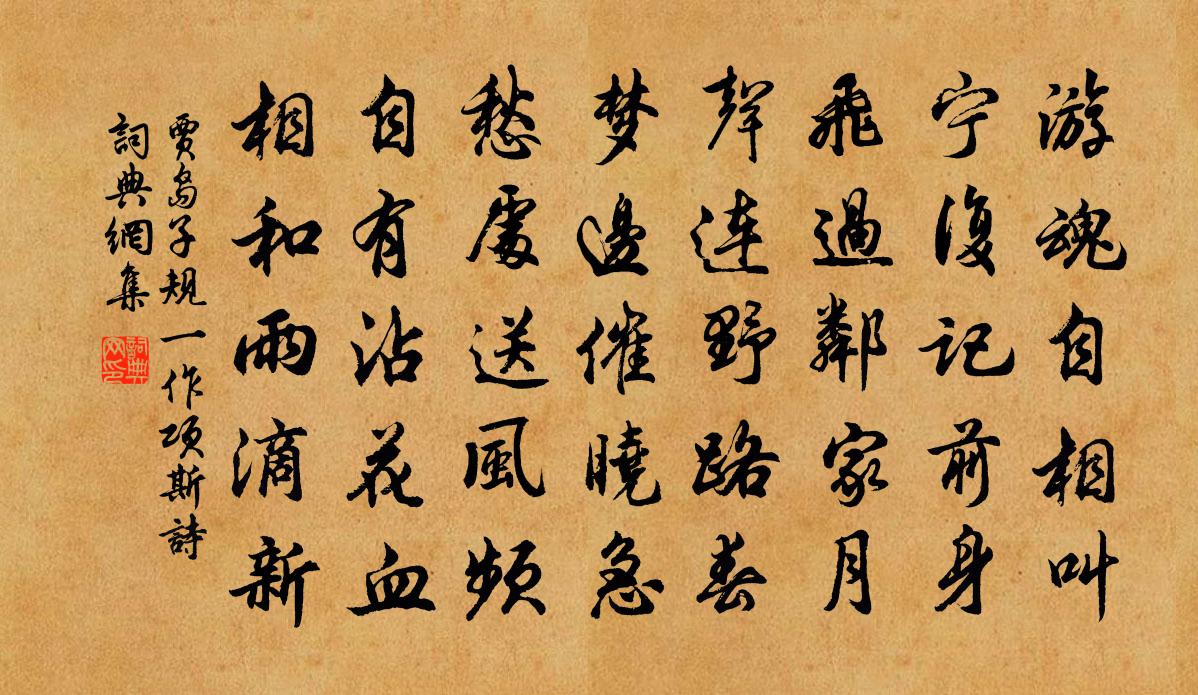 游魂自相叫
宁復记前身
飛過鄰家月
聲连野路春
梦邊催曉急
愁處送風頻
自有沾花血
相和雨滴新
賈岛子规一作项斯詩
詞典網集
詞典網印